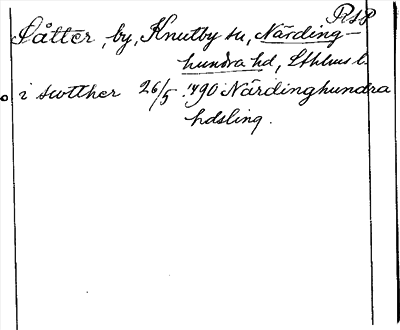 RSP
Såtter, by, Knutby sn, Närding-
hundra hd, Sthlms l.
i swtther 26/5 1490 Närdinghundra
hdsling.